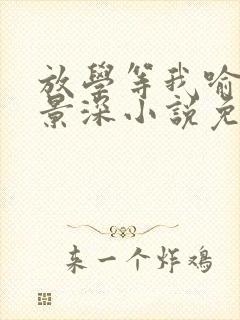 放學等我喻
景深小説免
来一个炸鸡